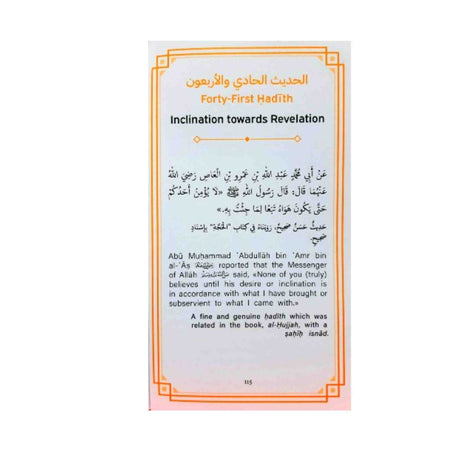 الحديث الحادي والأربعون
Forty-First Ḥadīth
Inclination towards Revelation
عَنْ أَبِي مُحَمَّدٍ عَبْدِ اللهِ بْنِ عَمْرِو بْنِ الْعَاصِ رَضِيَ اللهُ
عَنْهُمَا قَالَ: قَالَ رَسُولُ اللهِ ﷺ «لَا يُؤْمِنُ أَحَدُكُمْ
حَتَّى يَكُونَ هَوَاهُ تَبَعًا لِمَا جِئْتُ بِهِ.»
حَدِيثٌ حَسَنٌ صَحِيحٌ، رَوَيْنَاهُ فِي كِتَابِ "الْحُجَّةِ" بِإِسْنَادٍ
صَحِيحٍ.
Abū Muḥammad ʿAbdullāh bin ʿAmr bin
al-ʿĀṣ reported that the Messenger
of Allāh said, «None of you (truly)
believes until his desire or inclination is
in accordance with what I have brought or
subservient to what I came with.»
A fine and genuine ḥadīth which was
related in the book, al-Ḥujjah, with a
ṣaḥīḥ isnād.
115